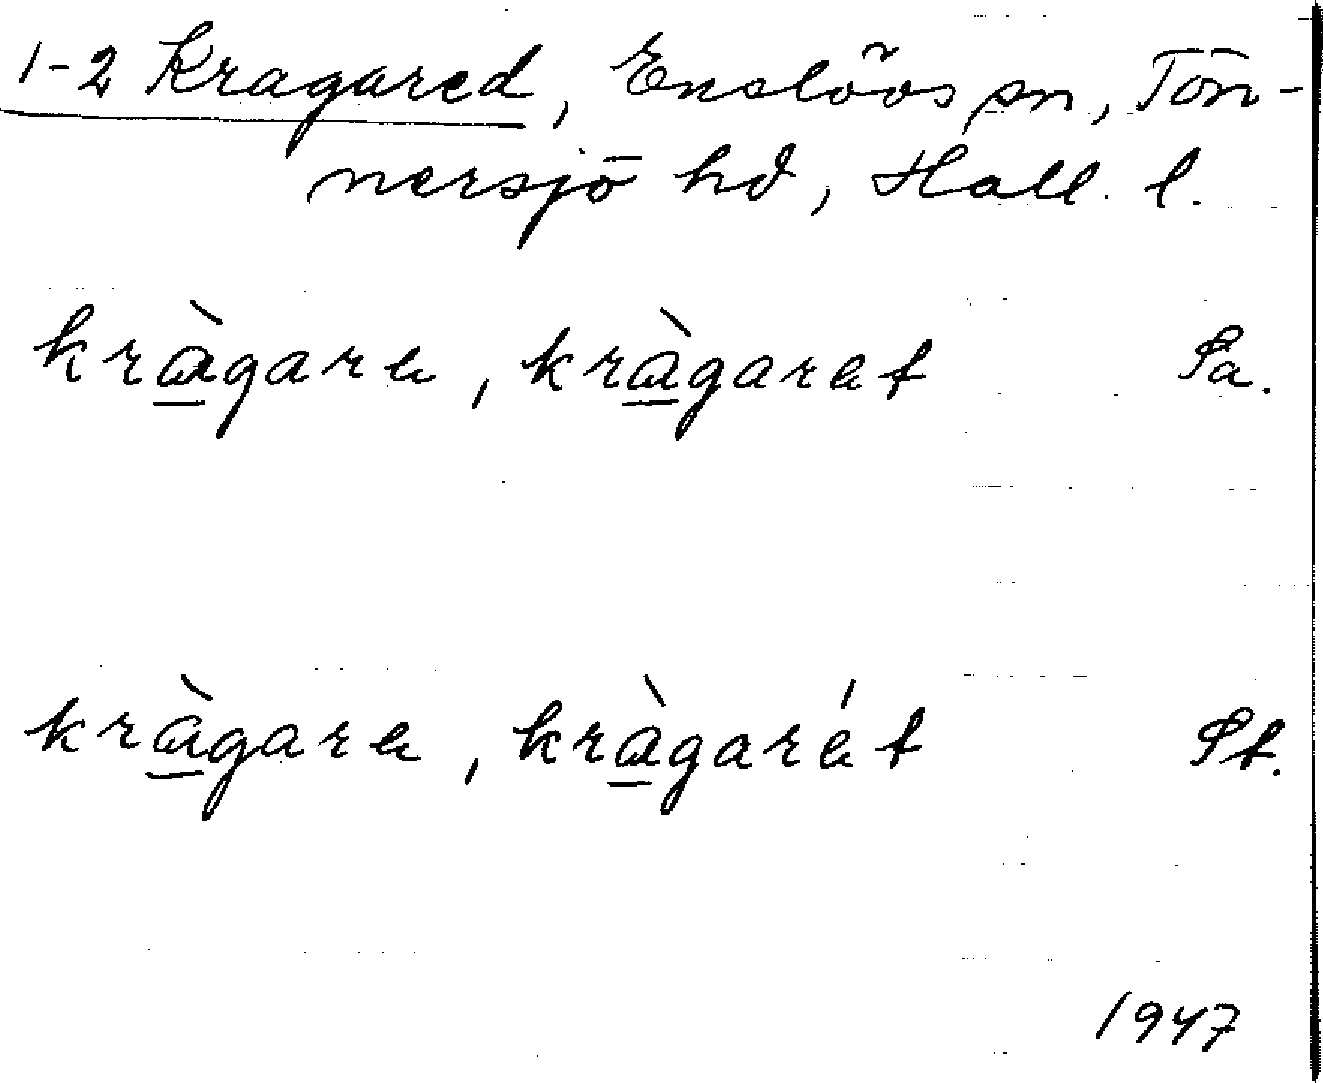 1-2 Kragared, Enslövs sn, Tön-
nersjö hd, Hall. l.
kràgare, kràgaret Pa.
kràgare, kràgarét Pt.
1947